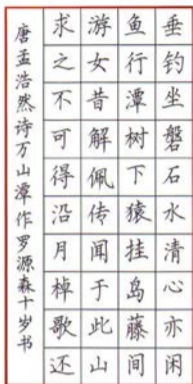 垂钓坐磐石水清心亦闲
鱼行潭树下猿挂岛藤间
游女昔解佩传闻于此山
求之不可得沿月棹歌还
唐孟浩然诗万山潭作罗源森十岁书